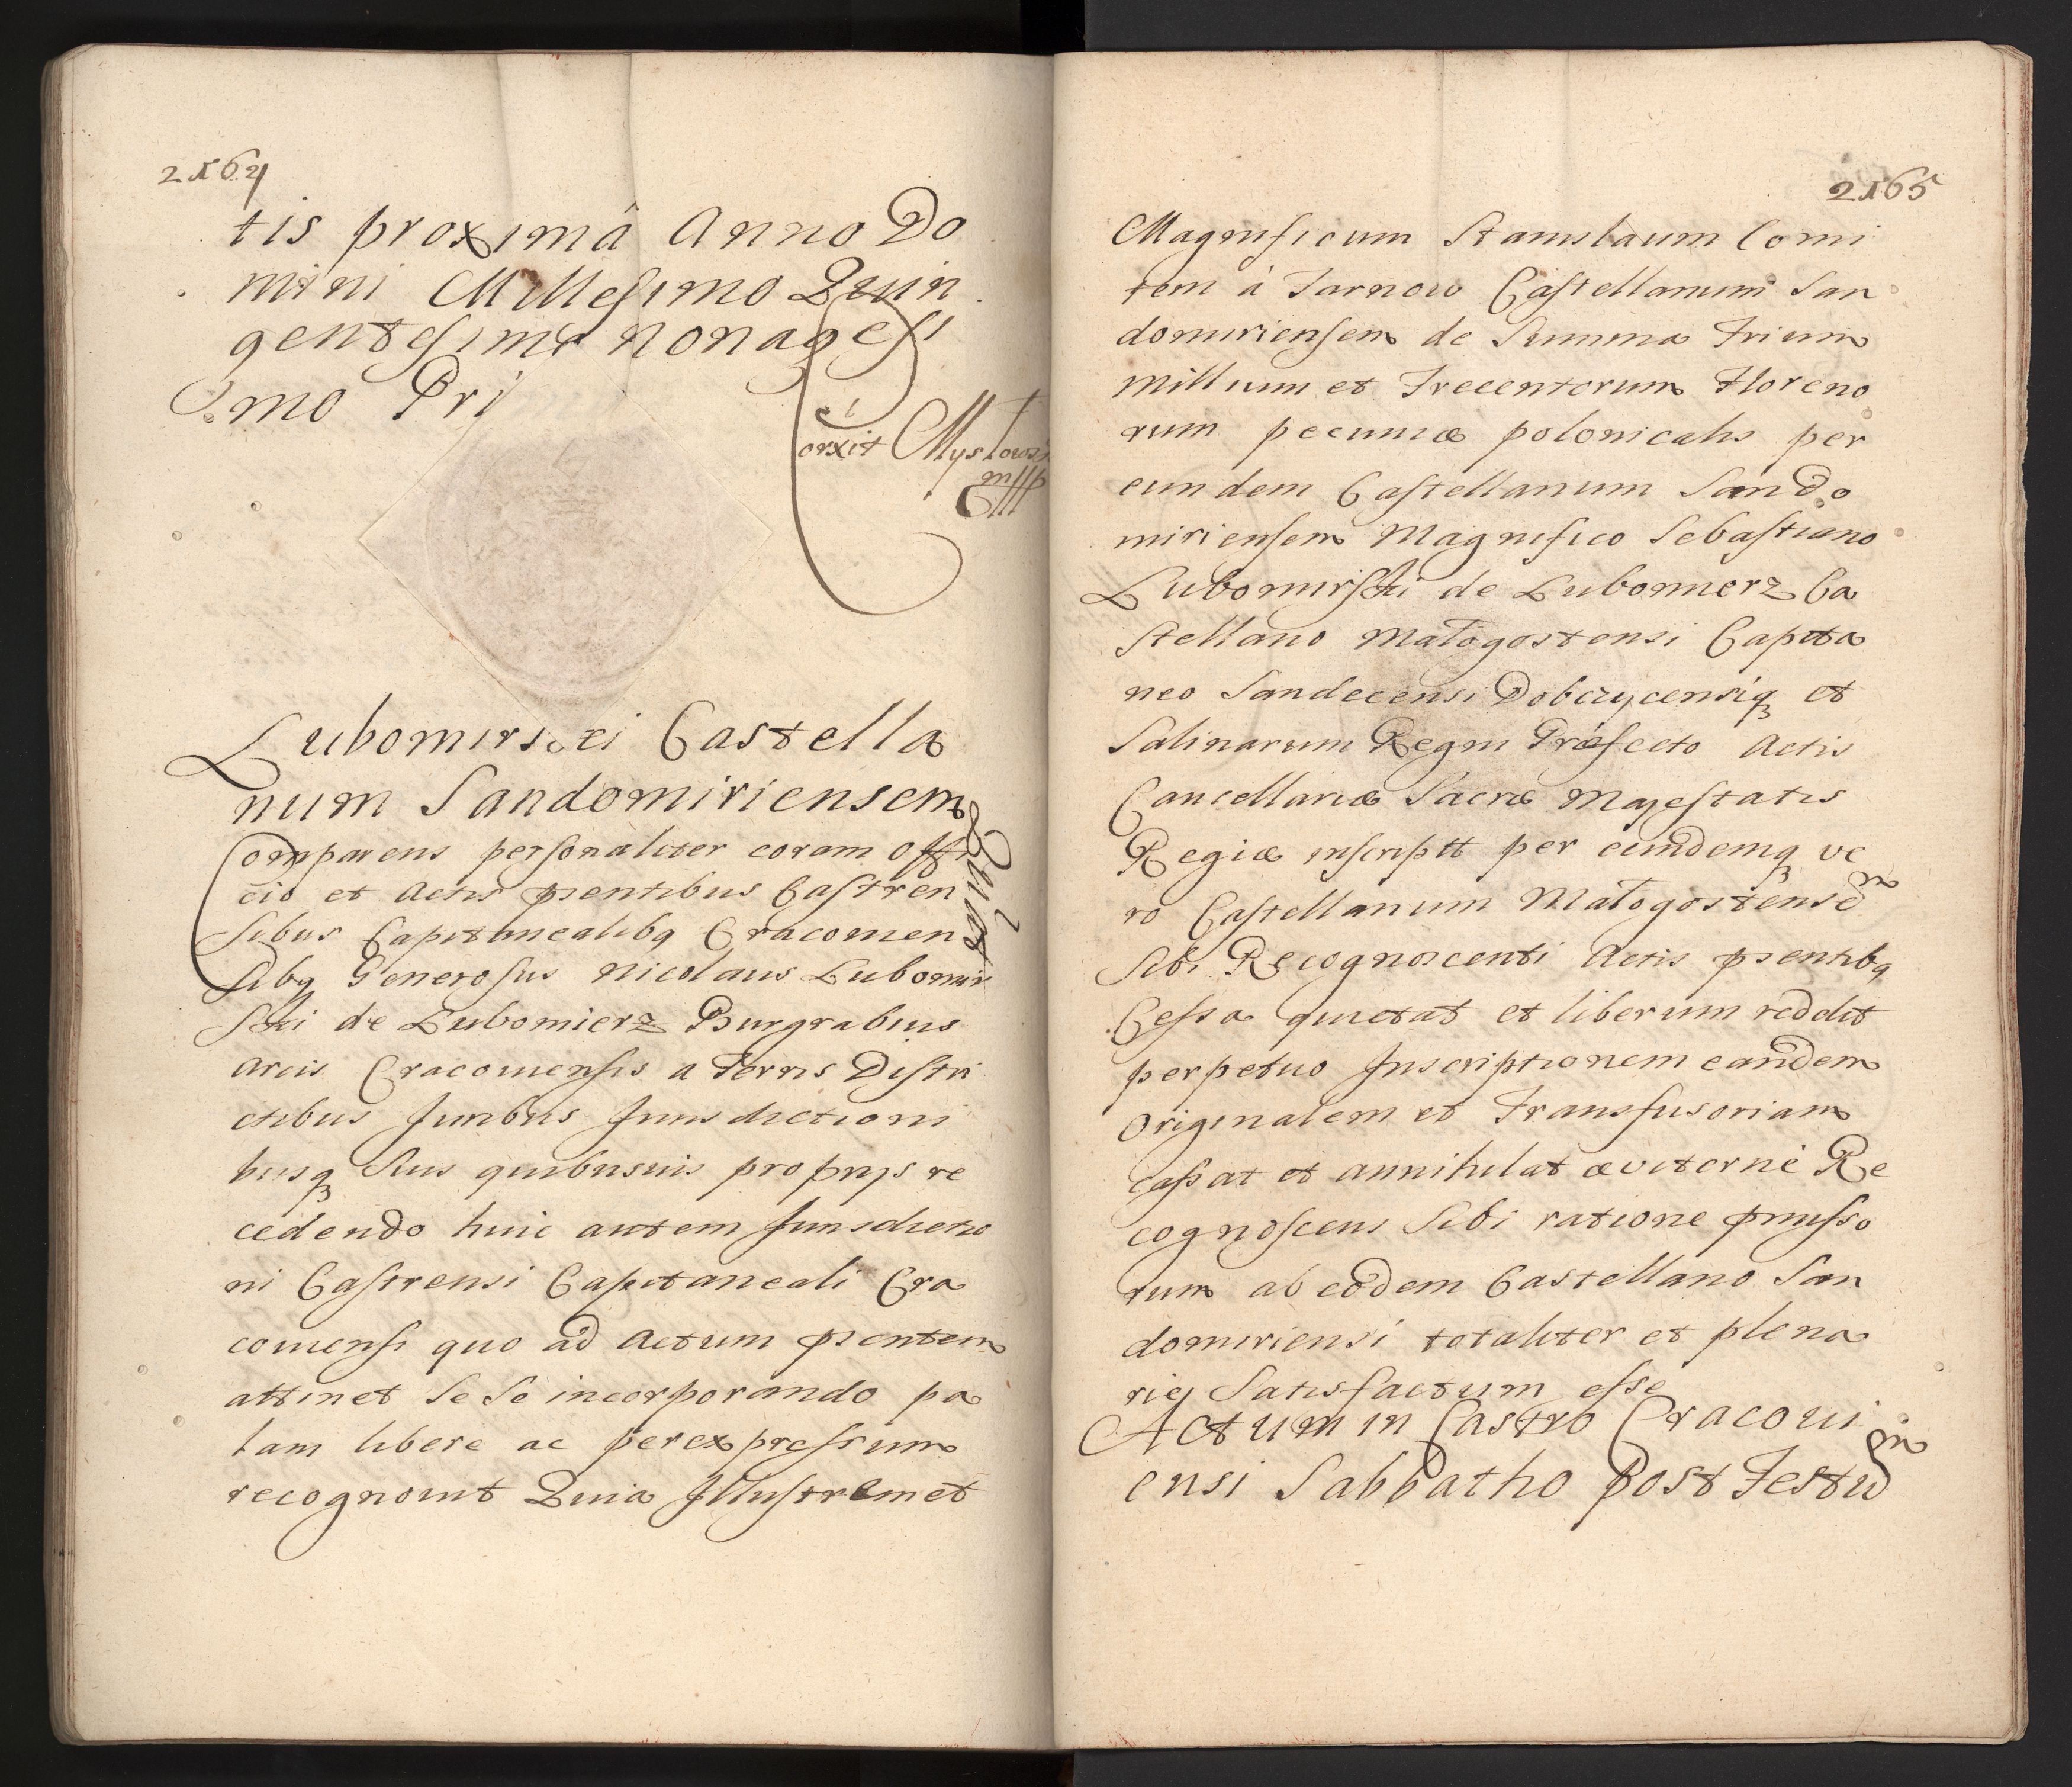 2164
tis proximâ Anno Do
mini Millesimo Quin
gentesimo nonagesi
mo Pri
orxit Mysłows
mpp
Lubomirski Castella
num Sandomiriensem
Quietat
Comparens personaliter coram Offi
cio et Actis pṡentibus Castren
sibus Capitanealibq Cracovien
sibq Generosus Nicolaus Lubomir
ski de Lubomierz Burgrabius
Arcis Cracoviensis a Terris Distri
ctibus Juribus Jurisdictioni
busq Suis quibusuis proprijs re
cedendo huic autem Jurisdictio
ni Castrensi Capitaneali Cra
coviensi quo ad Actum pṡentem
attinet Se Se incorporando pa
lam libere ac per expressum
recognovit Quia Illustrem et
2165
Magnificum Stanislaum Comi
tem à Tarnow Castellanum San
domiriensem de Summa Trium
Millium et Trecentorum Floreno
rum pecuniæ polonicalis per
eundem Castellanum Sando
miriensem Magnifico Sebastiano
Lubomirski de Lubomierz Ca
stellano Małogostensi Capita
neo Sandecensi Dobczycensiq et
Salinarum Regni Præfecto Actis
Cancellariæ Sacræ Majestatis
Regiæ inscriptt per eundemq ve
ro Castellanum Małogostensem
Sibi Recognoscenti Actis pṡentibq
Cessa quietat et liberum reddit
perpetuo Inscriptionem eandem
Originalem et Transfusoriam
cassat et annihilat æviternè Re
cognoscens Sibi ratione pṁisso
rum ab eodem Castellano San
domiriensi totaliter et plena
riej Satisfactum esse
Actum in Castro Cracovi
ensi Sabbatho post Festum